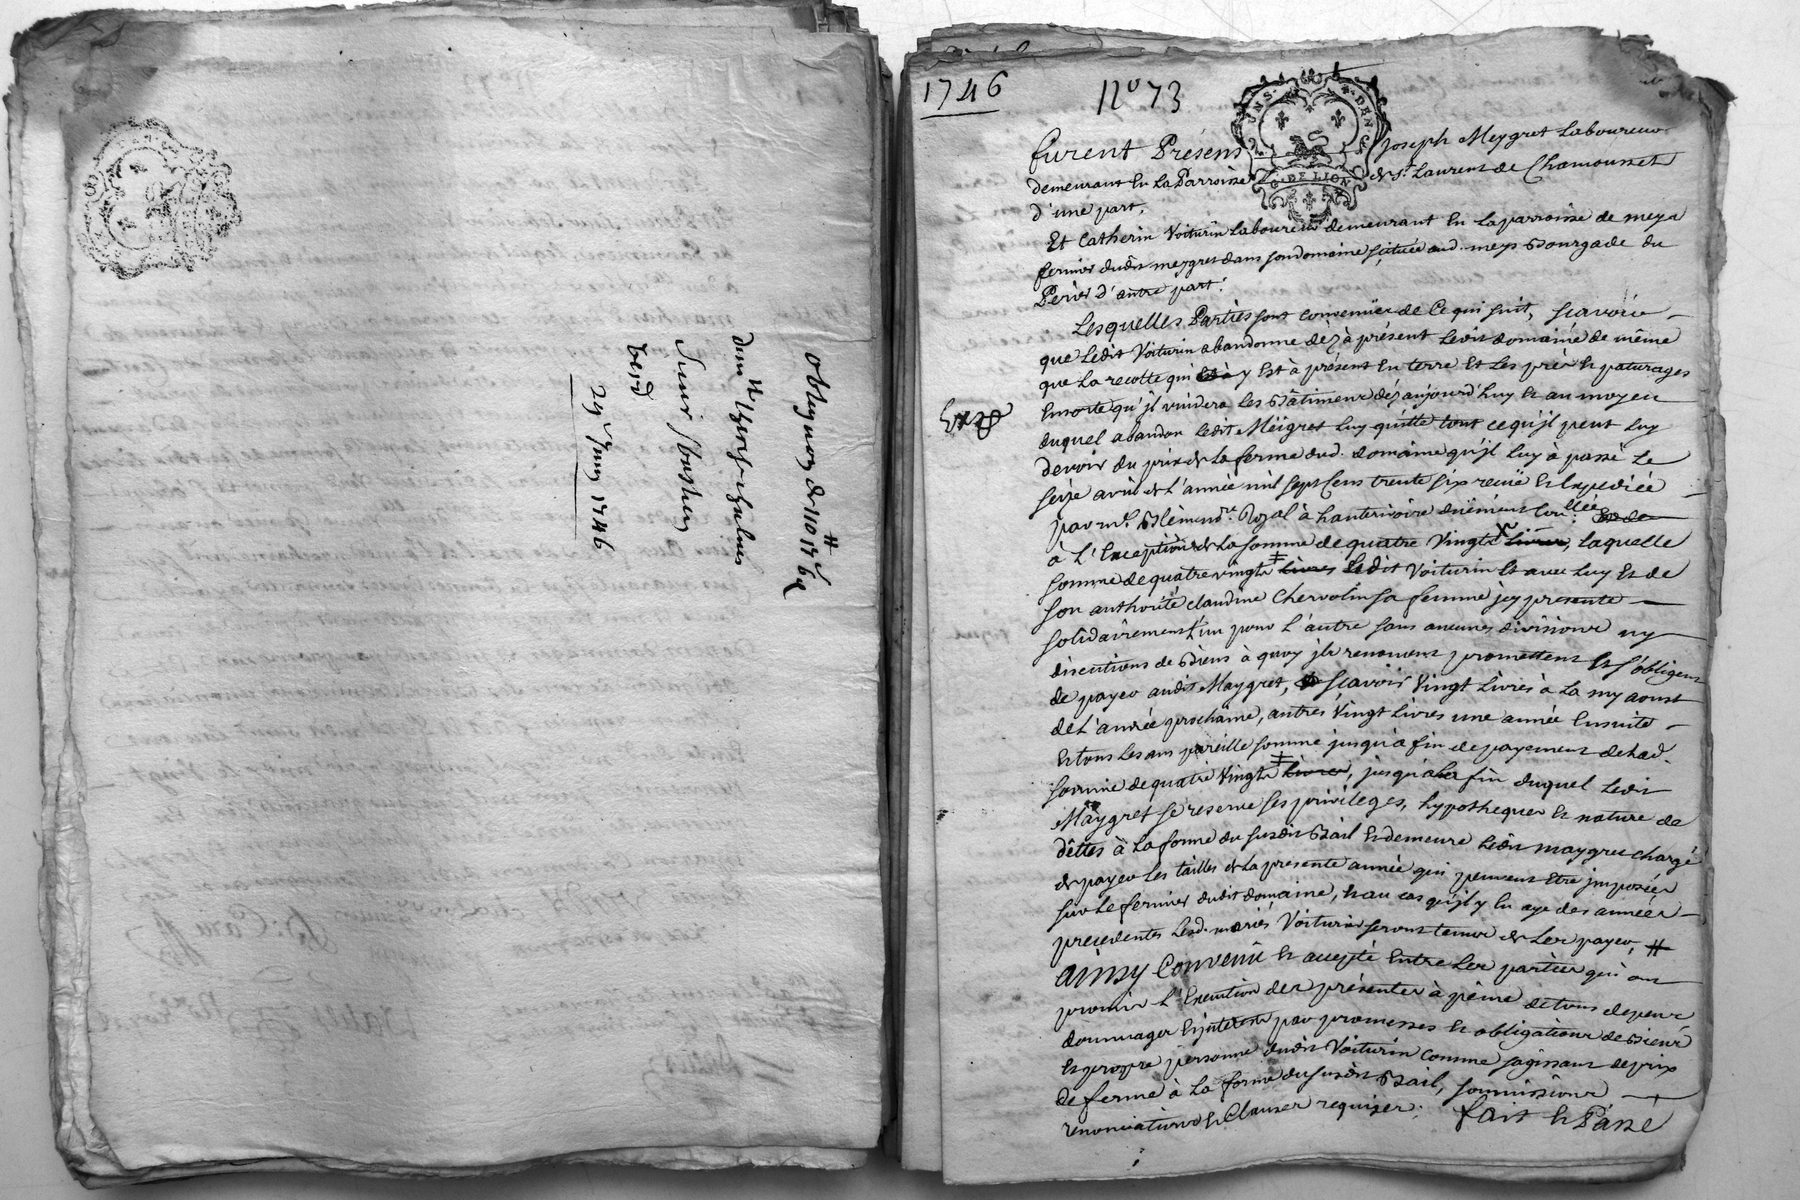 obligaon de 110# 17s 6d
dun# p joseph
Sieur
29e juin 1746
1746
n° 73
G. DE LION
furent Présens Joseph Meygret Laboureur
demeurant en La Parroisse de St. Laurent de Chamousset
d'une part,
Et Catherin Voiturin Laboureur demeurant en La parroisse de meys
fermier dudit meygret dans son domaine scituée aud. meys Bourgade du
Perier d'autre part.
Lesquelles Parties sont convenües de Ce qui suit, scavoir
que Ledit Voiturin abandonne dèz à présent Ledit domaine de même
que La recolte qui y Est à présent En terre Et Les préz Et paturages
Ensorte qu'jl viudera les Bâtimens déz aujourd'huy Et au moyen
duquel abandon Ledit Meigret Luy quitte tout ce qu'jl peut Luy
devoir du prix de La ferme dud. domaine qu'jl Luy à passé Le
seize avril de L'année mil sept Cens trente six reçüe Et Expediée
par me. Clemend re. Royal à hauterivoire düement Con.llée
à L'Exception de La somme de quatre Vingts livres, Laquelle
somme de quatre vingts livres Ledit Voiturin Et avec Luy Et de
son authorité claudine Chervolin sa femme jcy presente
solidairement L'un pour L'autre sans aucunes divisions ny
discutions de Biens à quoy jls renoncent promettent Et s'obligent
de payer audit Maygret, scavoir Vingt Livres à La my aoust
de L'année prochaine, autres Vingt Livres une année Ensuite
Et tous Les ans pareille somme jusqu'a fin de payement de Lad.
somme de quatre Vingts livres, jusqu'a La fin duquel Ledit
Maygret se reserve ses privileges, hypotheques Et nature de
dêttes à La forme du susdit Bail Et demeure Ledit maygret chargé
de payer Les tailles de La presente année qui peuvent Etre jmposées
sur Le fermier dudit domaine, Et au cas qu'jl y En aye des années
precedentes Lesd. mariés Voiturin seront tenus de Les payer, #
ainsy Convenu Et accepté Entre Les parties qui ont
promis L'Execution des présentes à peine de tous depens
dommages Et jnterests par promesses Et obligations de Biens
Et propre personne dudit Voiturin comme s'agissant de prix
de ferme à La forme du susdit Bail, soumissions
renonciations Et Clauses requises. fait Et Passé